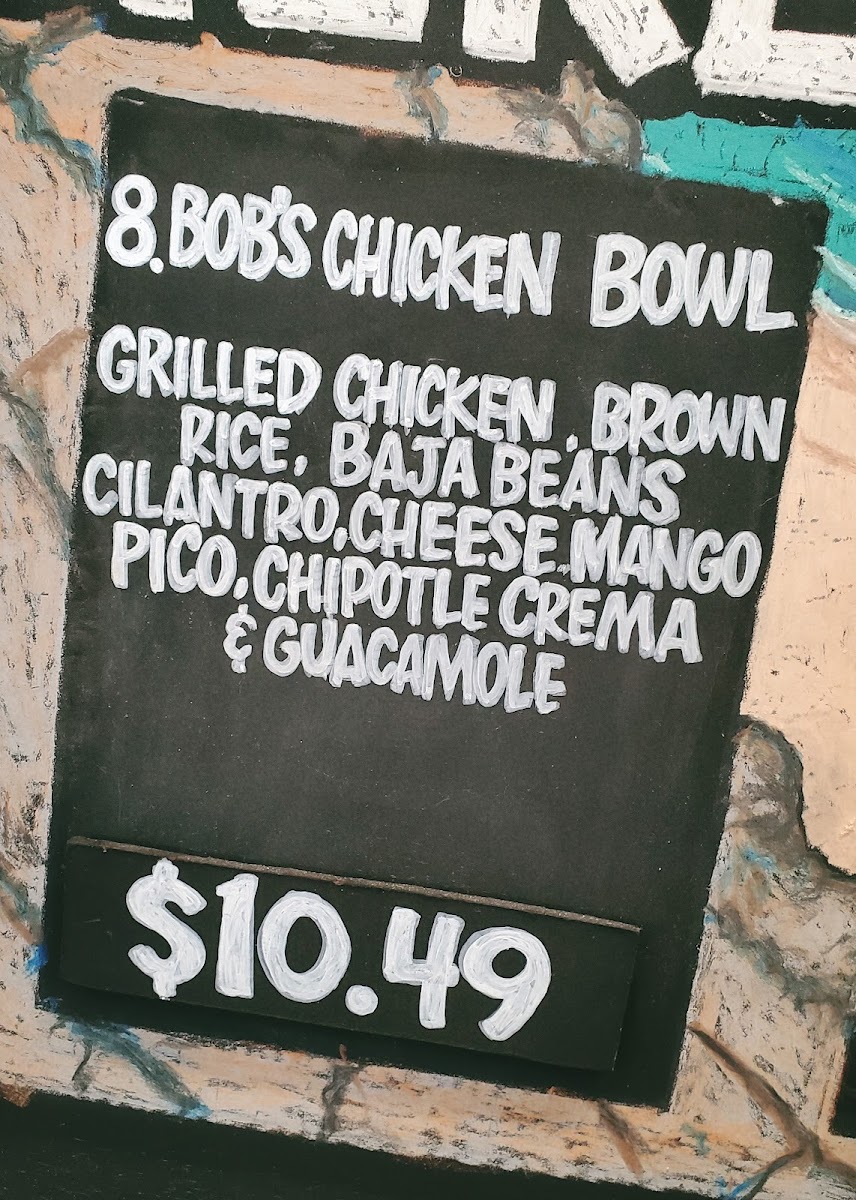 8. BOB'S CHICKEN BOWL
GRILLED CHICKEN, BROWN
RICE, BAJA BEANS
CILANTRO, CHEESE, MANGO
PICO, CHIPOTLE CREMA
& GUACAMOLE
$10.49